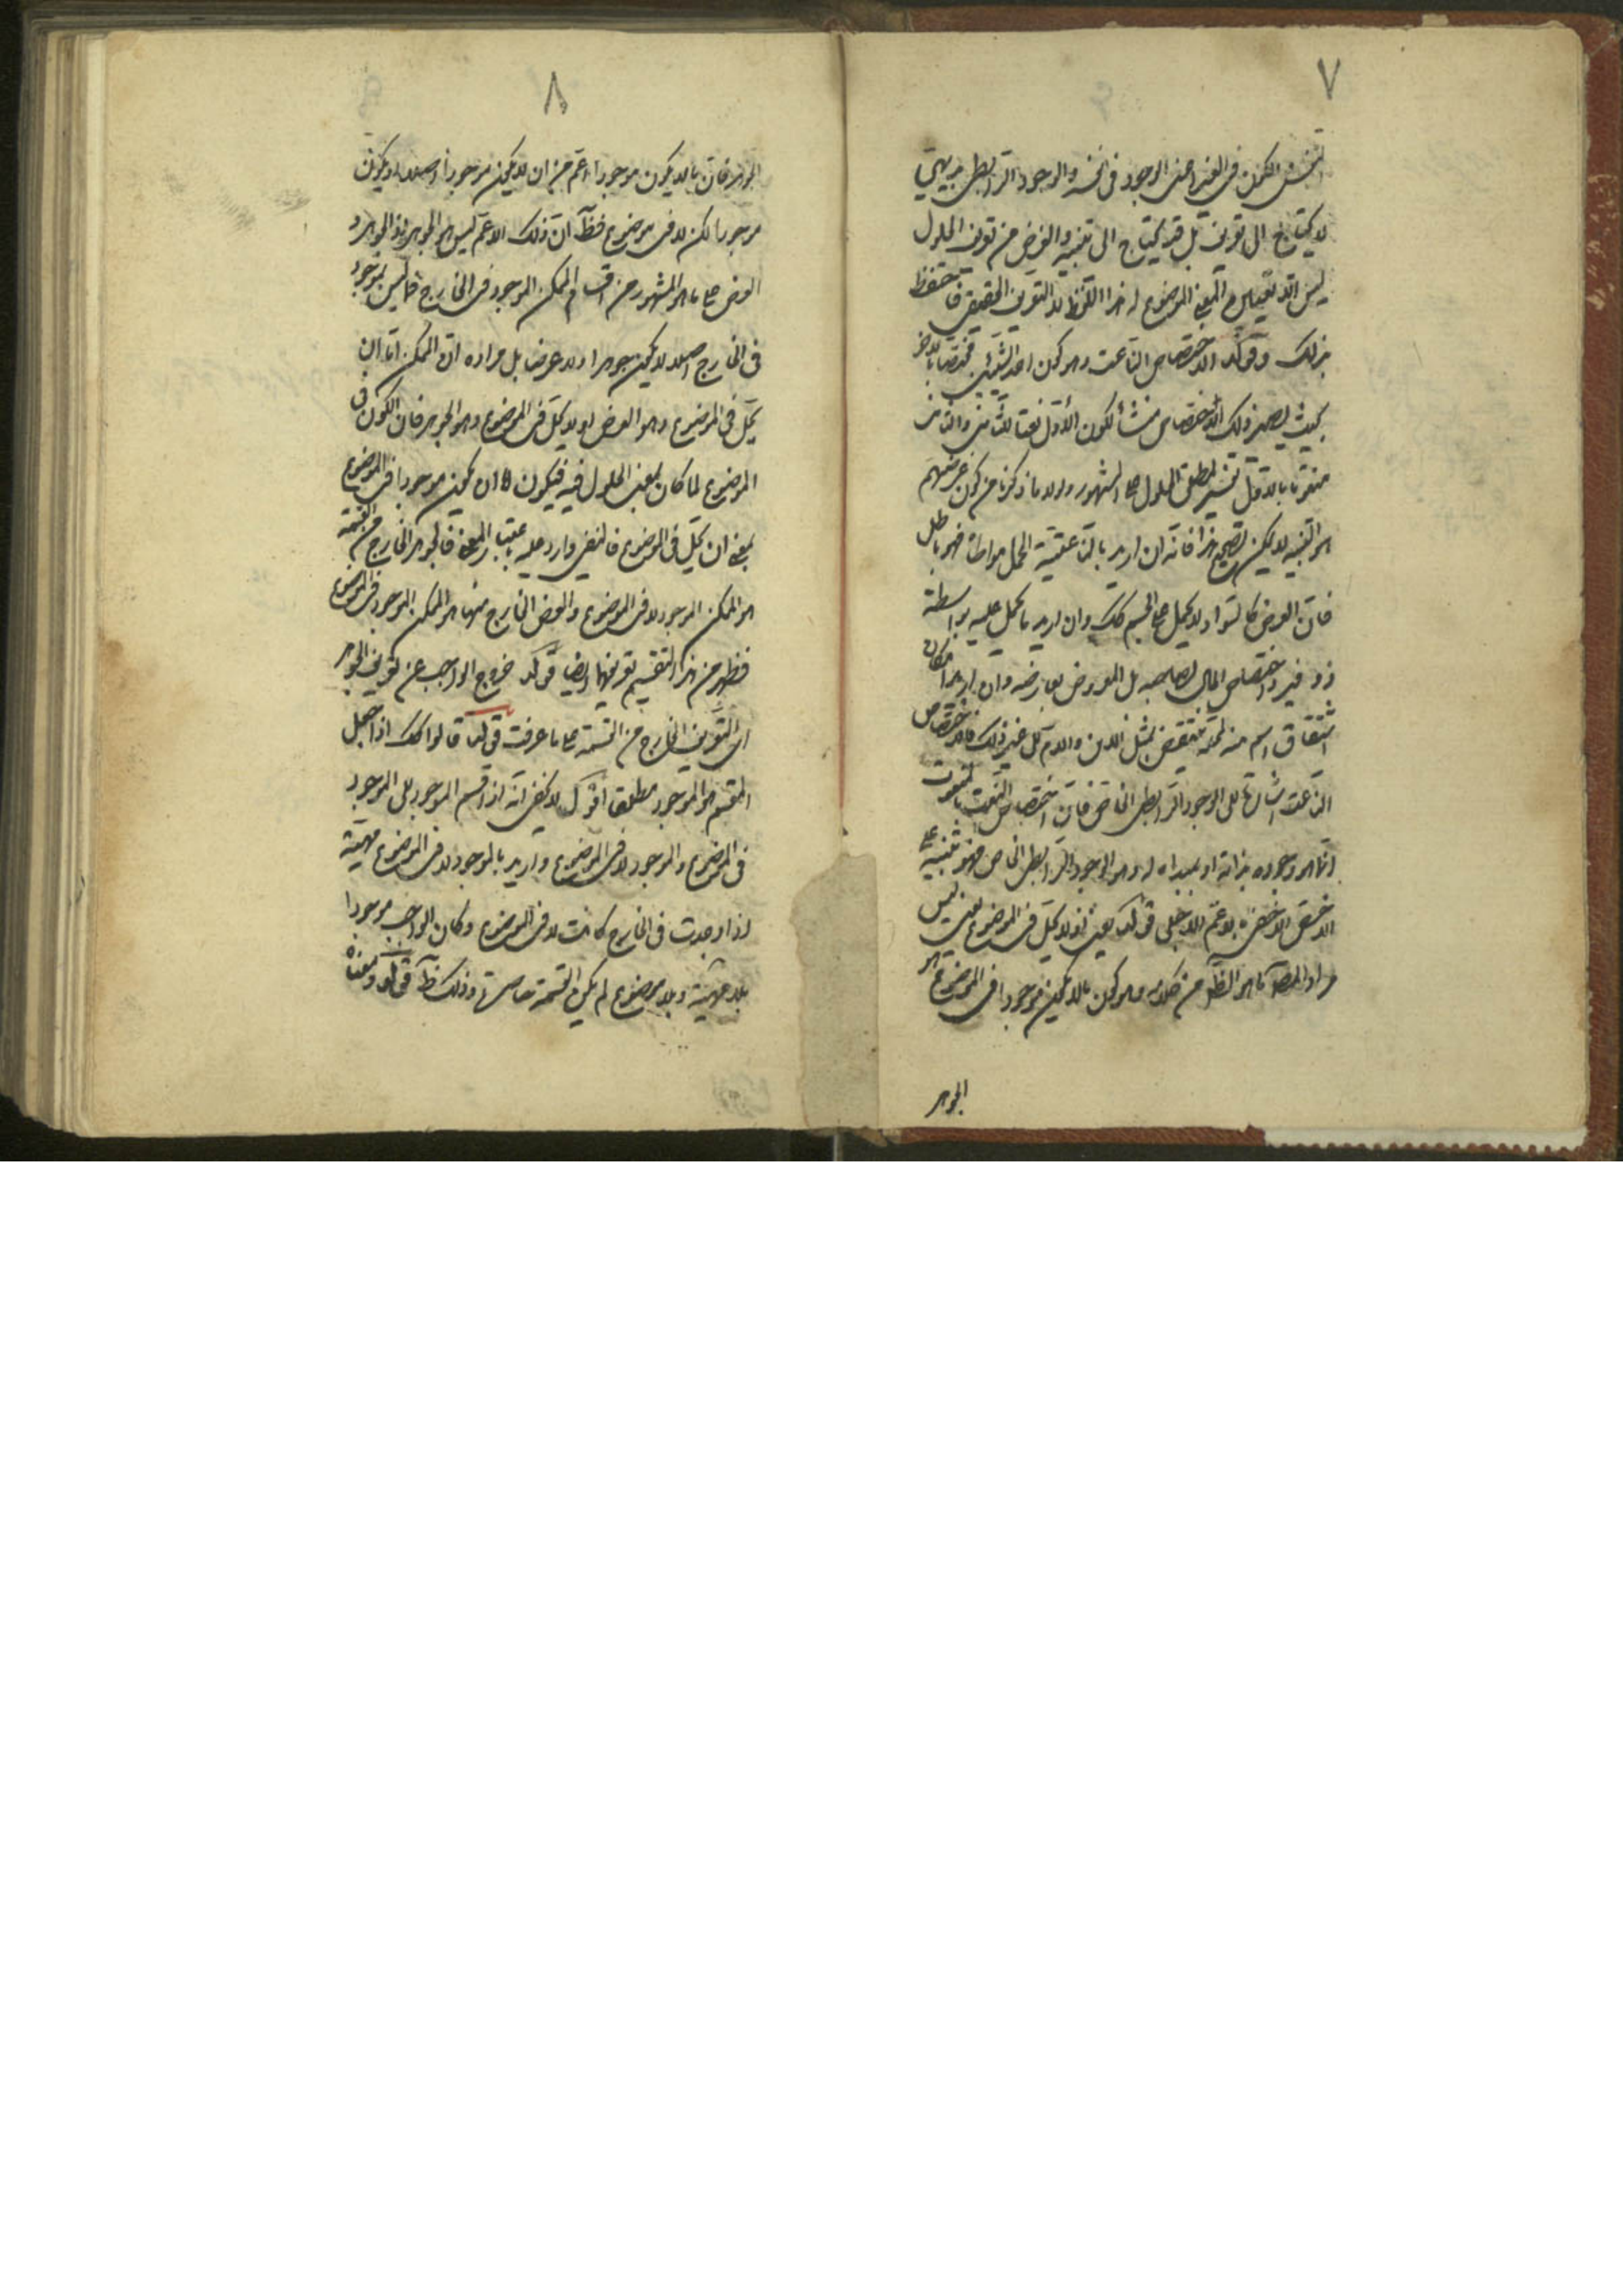 ٧
الكون فى الغير اعنى الوجود فى نفسه والوجود الرابطى بديهى
لا يحتاج الى تعريف بل قد يحتاج الى تنبيه والغرض من تعريف الحلول
ليس الا تعيين المعنى الموضوع له هذا اللفظ لا التعريف الحقيقى فاحتفظ
بذلك وقوله الاختصاص الناعت وهو كون احد الشيئين مختصا بالاخر
بحيث يصير ذلك الاختصاص منشأ لكون الأول نعتا للثانى والثانى
منعوتا بالاول تفسير لمطلق الحلول على المشهور ولولا ما ذكرنا من كون غرضهم
هو التنبيه لا يمكن تصحيح هذا فانه ان اريد بالناعتية الحمل مواطاة فهو باطل
فان العرض كالسواد لا يحمل على الجسم كك وان اريد ما يحمل عليه بواسطة
ذو فيرد اختصاص المال بصاحبه بل المعروض بعارضه وان اريد امكان
اشتقاق اسم منه لمحله فينتقض بمثل اللابن والامر كل غير ذلك فالاختصاص
الناعت اشارة الى الوجود الرابطى الخاص فان اختصاص النعت بالمنعوت
انما هو وجوده بذاته او بمبدأه له وهو الوجود الرابطى الخاص فهو تنبيه على
الاخفى بالاجلى قوله يعنى ان لا يحل فى الموضوع يعنى ليس
مراد المص ما هو الظاهر من كلامه وهو كون ما لا يكون موجودا فى الموضوع هو
الجوهر
٨
الجوهر فان ما لا يكون موجودا اعم من ان لا يكون موجودا اصلا او يكون
موجودا لكن لا فى موضوع فظ ان ذلك الاعم ليس هو الجوهر اذ الجوهر و
العرض على ما هو المشهور من اقسام الممكن الموجود فى الخارج فما ليس بموجود
فى الخارج اصلا لا يكون جوهرا ولا عرضا بل مراده ان الممكن اما ان
يحل فى الموضوع وهو العرض او لا يحل فى الموضوع وهو الجوهر فان الكون فى
الموضوع لما كان بمعنى الحلول فيه فيكون ان يكون موجودا فى الموضوع
بمعنى ان يحل فى الموضوع فالنفى وارد عليه باعتبار المعنى فالجوهر الخارج من القسمة
هو الممكن الموجود لا فى الموضوع والعرض الخارج منها هو الممكن الموجود فى الموضوع
فظهر من هذا التقسيم تعريفهما ايضا قوله خروج الواجب عن تعريف الجوهر
اى التعريف الخارج من القسمة على ما عرفت قوله قالوا كك اذا جعل
المقسم هو الموجود مطلقا اقول لا يخفى انه اذا قسم الموجود الى الموجود
فى الموضوع والموجود لا فى الموضوع واريد بالموجود لا فى الموضوع مهية
اذا وجدت فى الخارج كانت لا فى الموضوع وكان الواجب موجودا
بلا مهية وبلا موضوع لم يكن القسمة حاصرة وذلك ظ قوله ومعناه